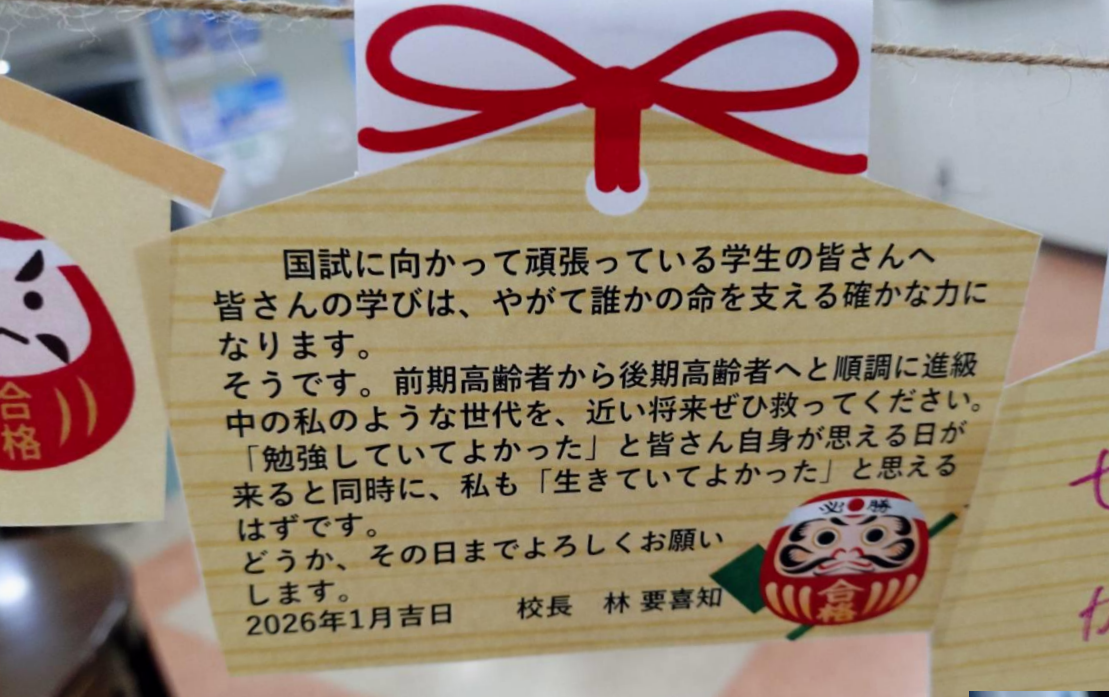 国試に向かって頑張っている学生の皆さんへ
皆さんの学びは、やがて誰かの命を支える確かな力に
なります。
そうです。前期高齢者から後期高齢者へと順調に進級
中の私のような世代を、近い将来ぜひ救ってください。
「勉強していてよかった」と皆さん自身が思える日が
来ると同時に、私も「生きていてよかった」と思える
はずです。
どうか、その日までよろしくお願い
します。
2026年1月吉日 校長 林 要喜知
必勝
合格
合格